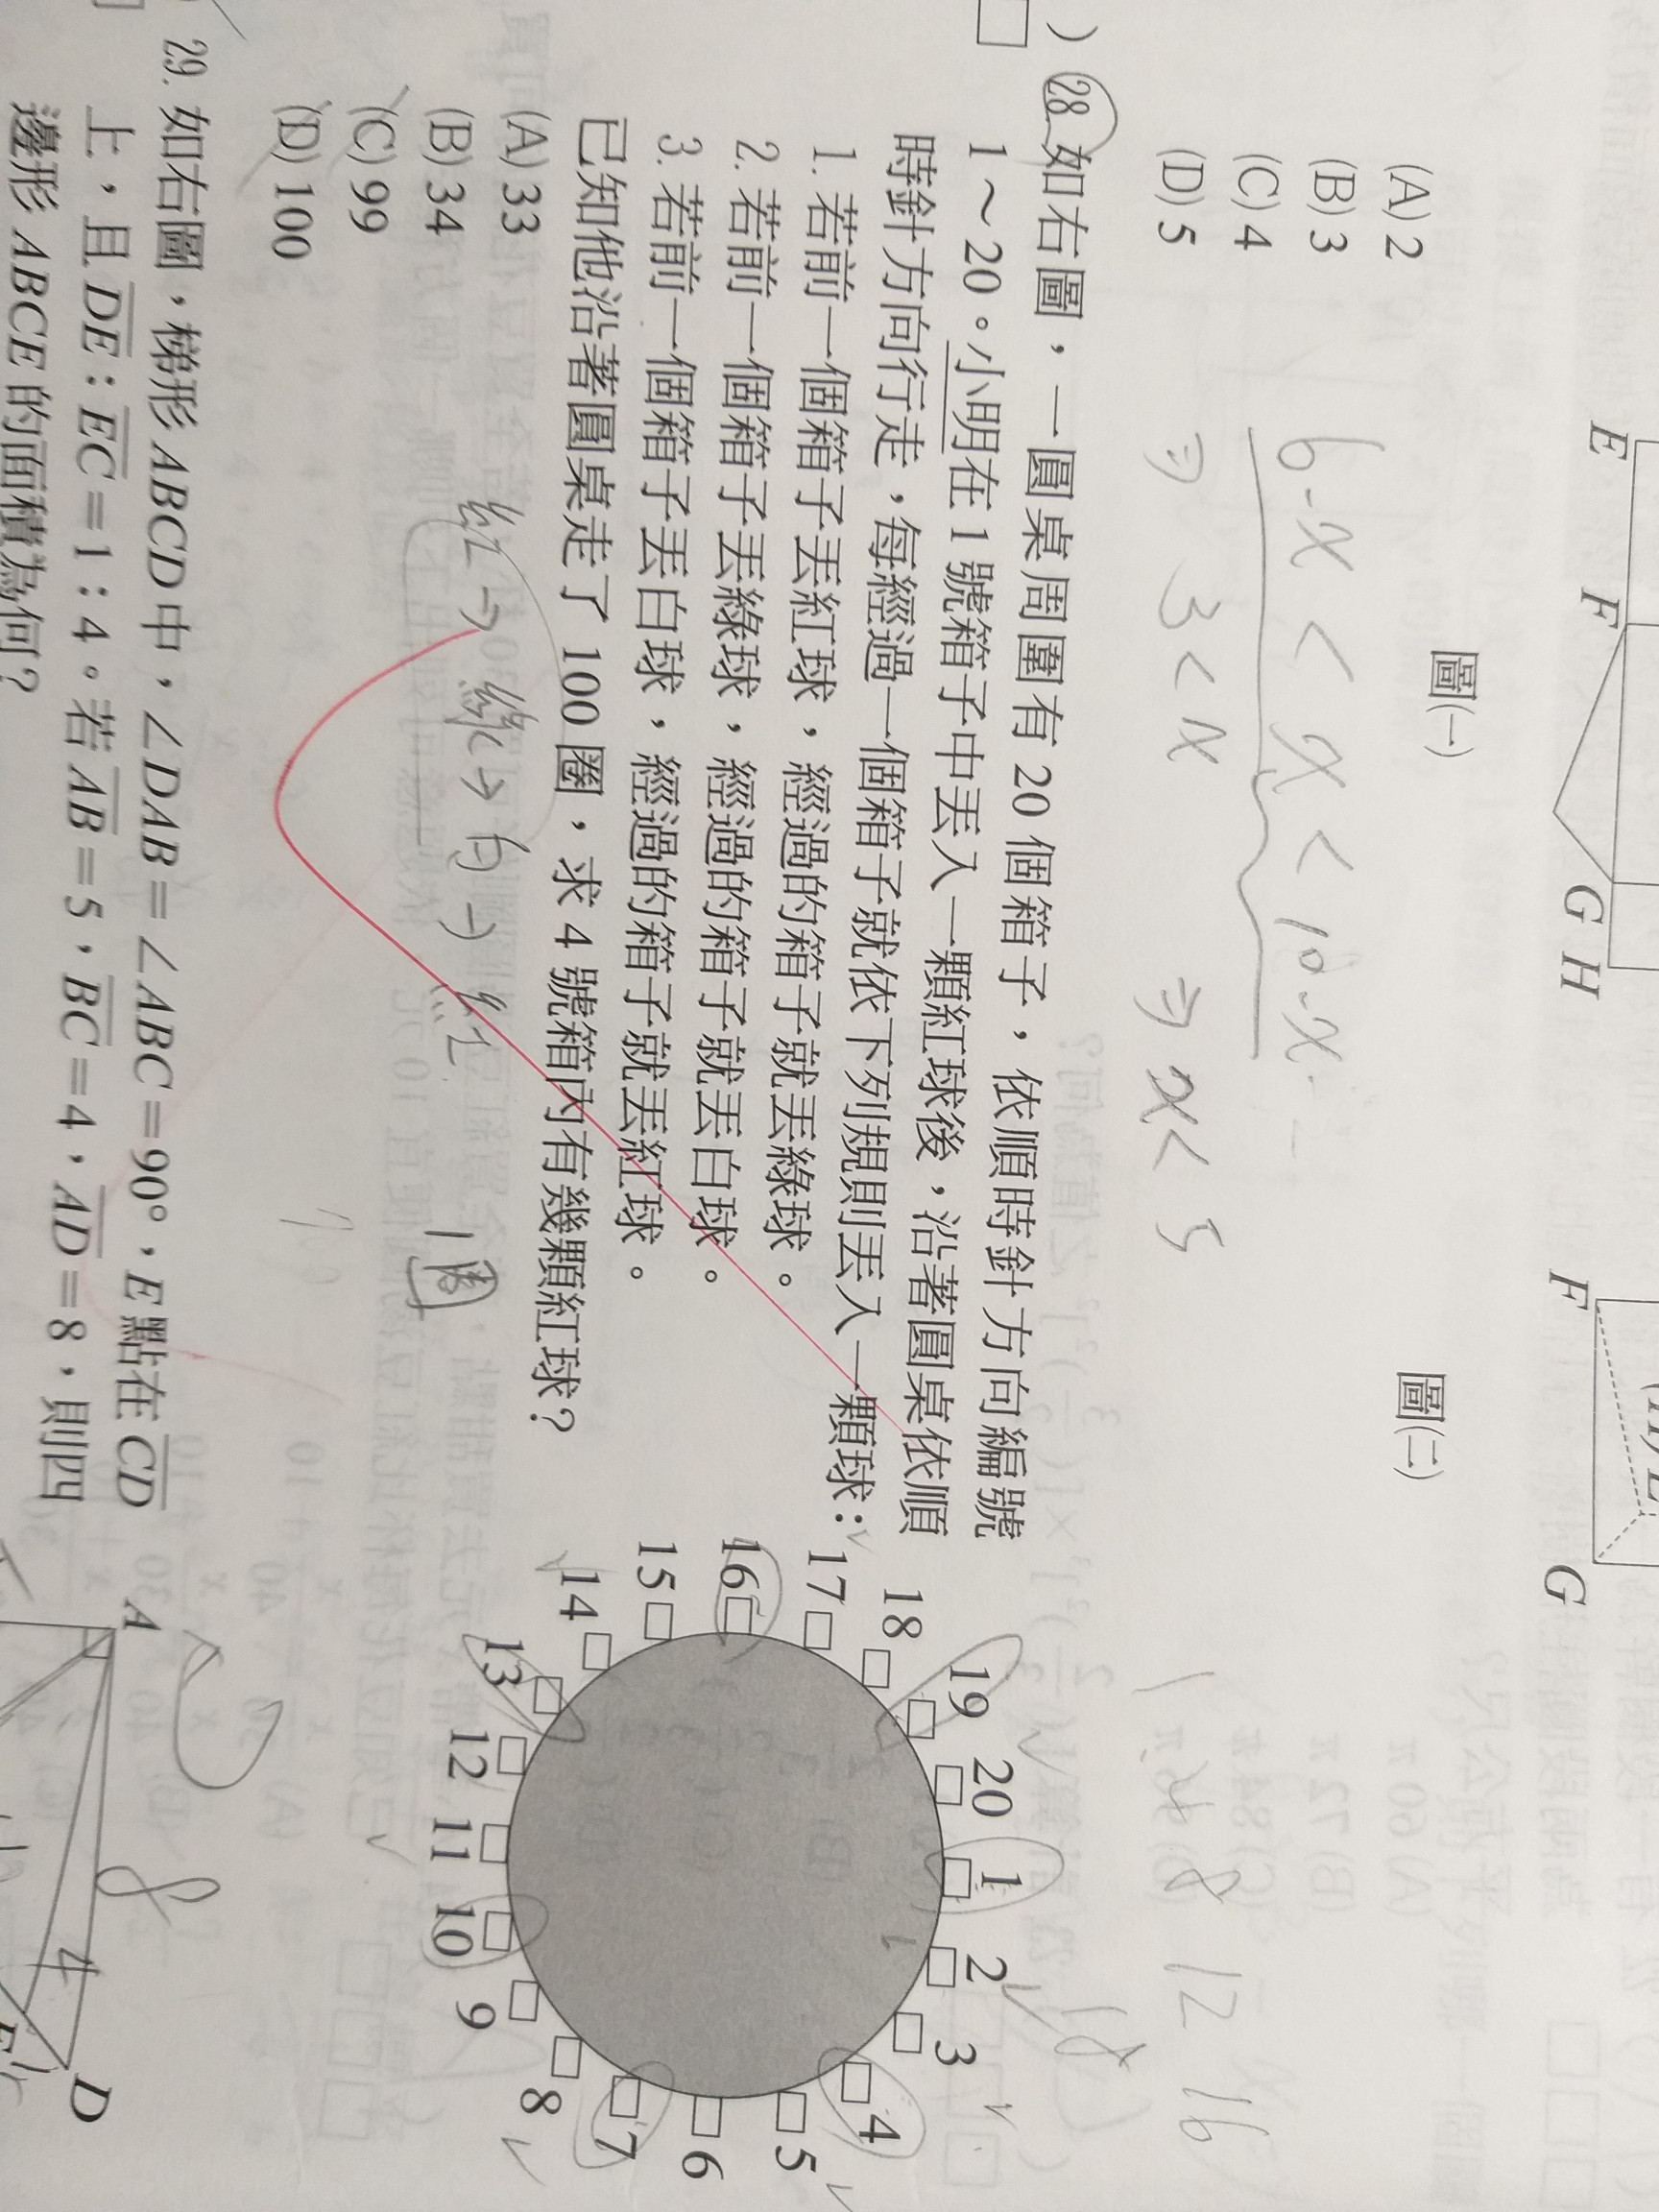 (A) 2
(B) 3
(C) 4
(D) 5
E
F
G
H
圖(一)
F
G
圖(二)
6-x < x < 10-x
⇒ 3 < x
⇒ x < 5
) 28. 如右圖，一圓桌周圍有 20 個箱子，依順時針方向編號
1～20。小明在 1 號箱子中丟入一顆紅球後，沿著圓桌依順
時針方向行走，每經過一個箱子就依下列規則丟入一顆球：
1. 若前一個箱子丟紅球，經過的箱子就丟綠球。
2. 若前一個箱子丟綠球，經過的箱子就丟白球。
3. 若前一個箱子丟白球，經過的箱子就丟紅球。
已知他沿著圓桌走了 100 圈，求 4 號箱內有幾顆紅球？
(A) 33
(B) 34
(C) 99
(D) 100
紅→綠→白→紅
1圈
1 4 8 12 16
18
19
20
1
2
3
4
5
6
7
8
9
10
11
12
13
14
15
16
17
18
29. 如右圖，梯形 ABCD 中，∠DAB = ∠ABC = 90°，E 點在 CD
上，且 DE：EC = 1：4。若 AB = 5，BC = 4，AD = 8，則四
邊形 ABCE 的面積為何？
A
8
4
D
E